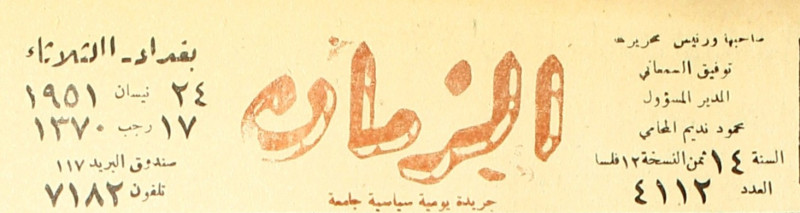 صاحبها ورئيس تحريرها
توفيق السمعاني
المدير المسؤول
محمود نديم المحامي
السنة ١٤ ثمن النسخة ١٢ فلسا
العدد ٤١١٢
الزمان
جريدة يومية سياسية جامعة
بغداد - الثلاثاء
٢٤ نيسان ١٩٥١
١٧ رجب ١٣٧٠
صندوق البريد ١١٧
تلفون ٧١٨٢